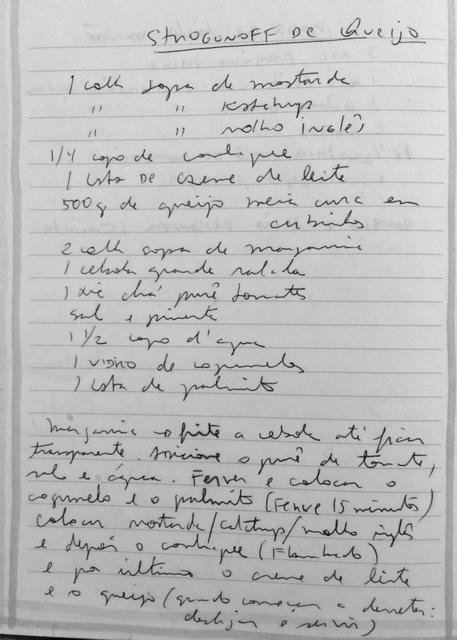 STROGONOFF DE QUEIJO
1 colh sopa de mostarda
" " Katchup
" " molho inglês
1/4 copo de conhaque
1 lata DE creme de leite
500 g de queijo meia cura em
cubinhos
2 colh sopa de margarina
1 cebola grande ralada
1 xic chá purê tomate
sal e pimenta
1 1/2 copo d'água
1 VIDRO de cogumelos
1 lata de palmito
Margarina frite a cebola até ficar
transparente. Adicione o purê de tomate,
sal e água. Ferver e colocar o
cogumelo e o palmito (Ferve 15 minutos)
colocar mostarda/catchup/molho inglês
e depois o conhaque (Flambado)
e por último o creme de leite
e o queijo (quando começar a derreter:
desligar e servir)